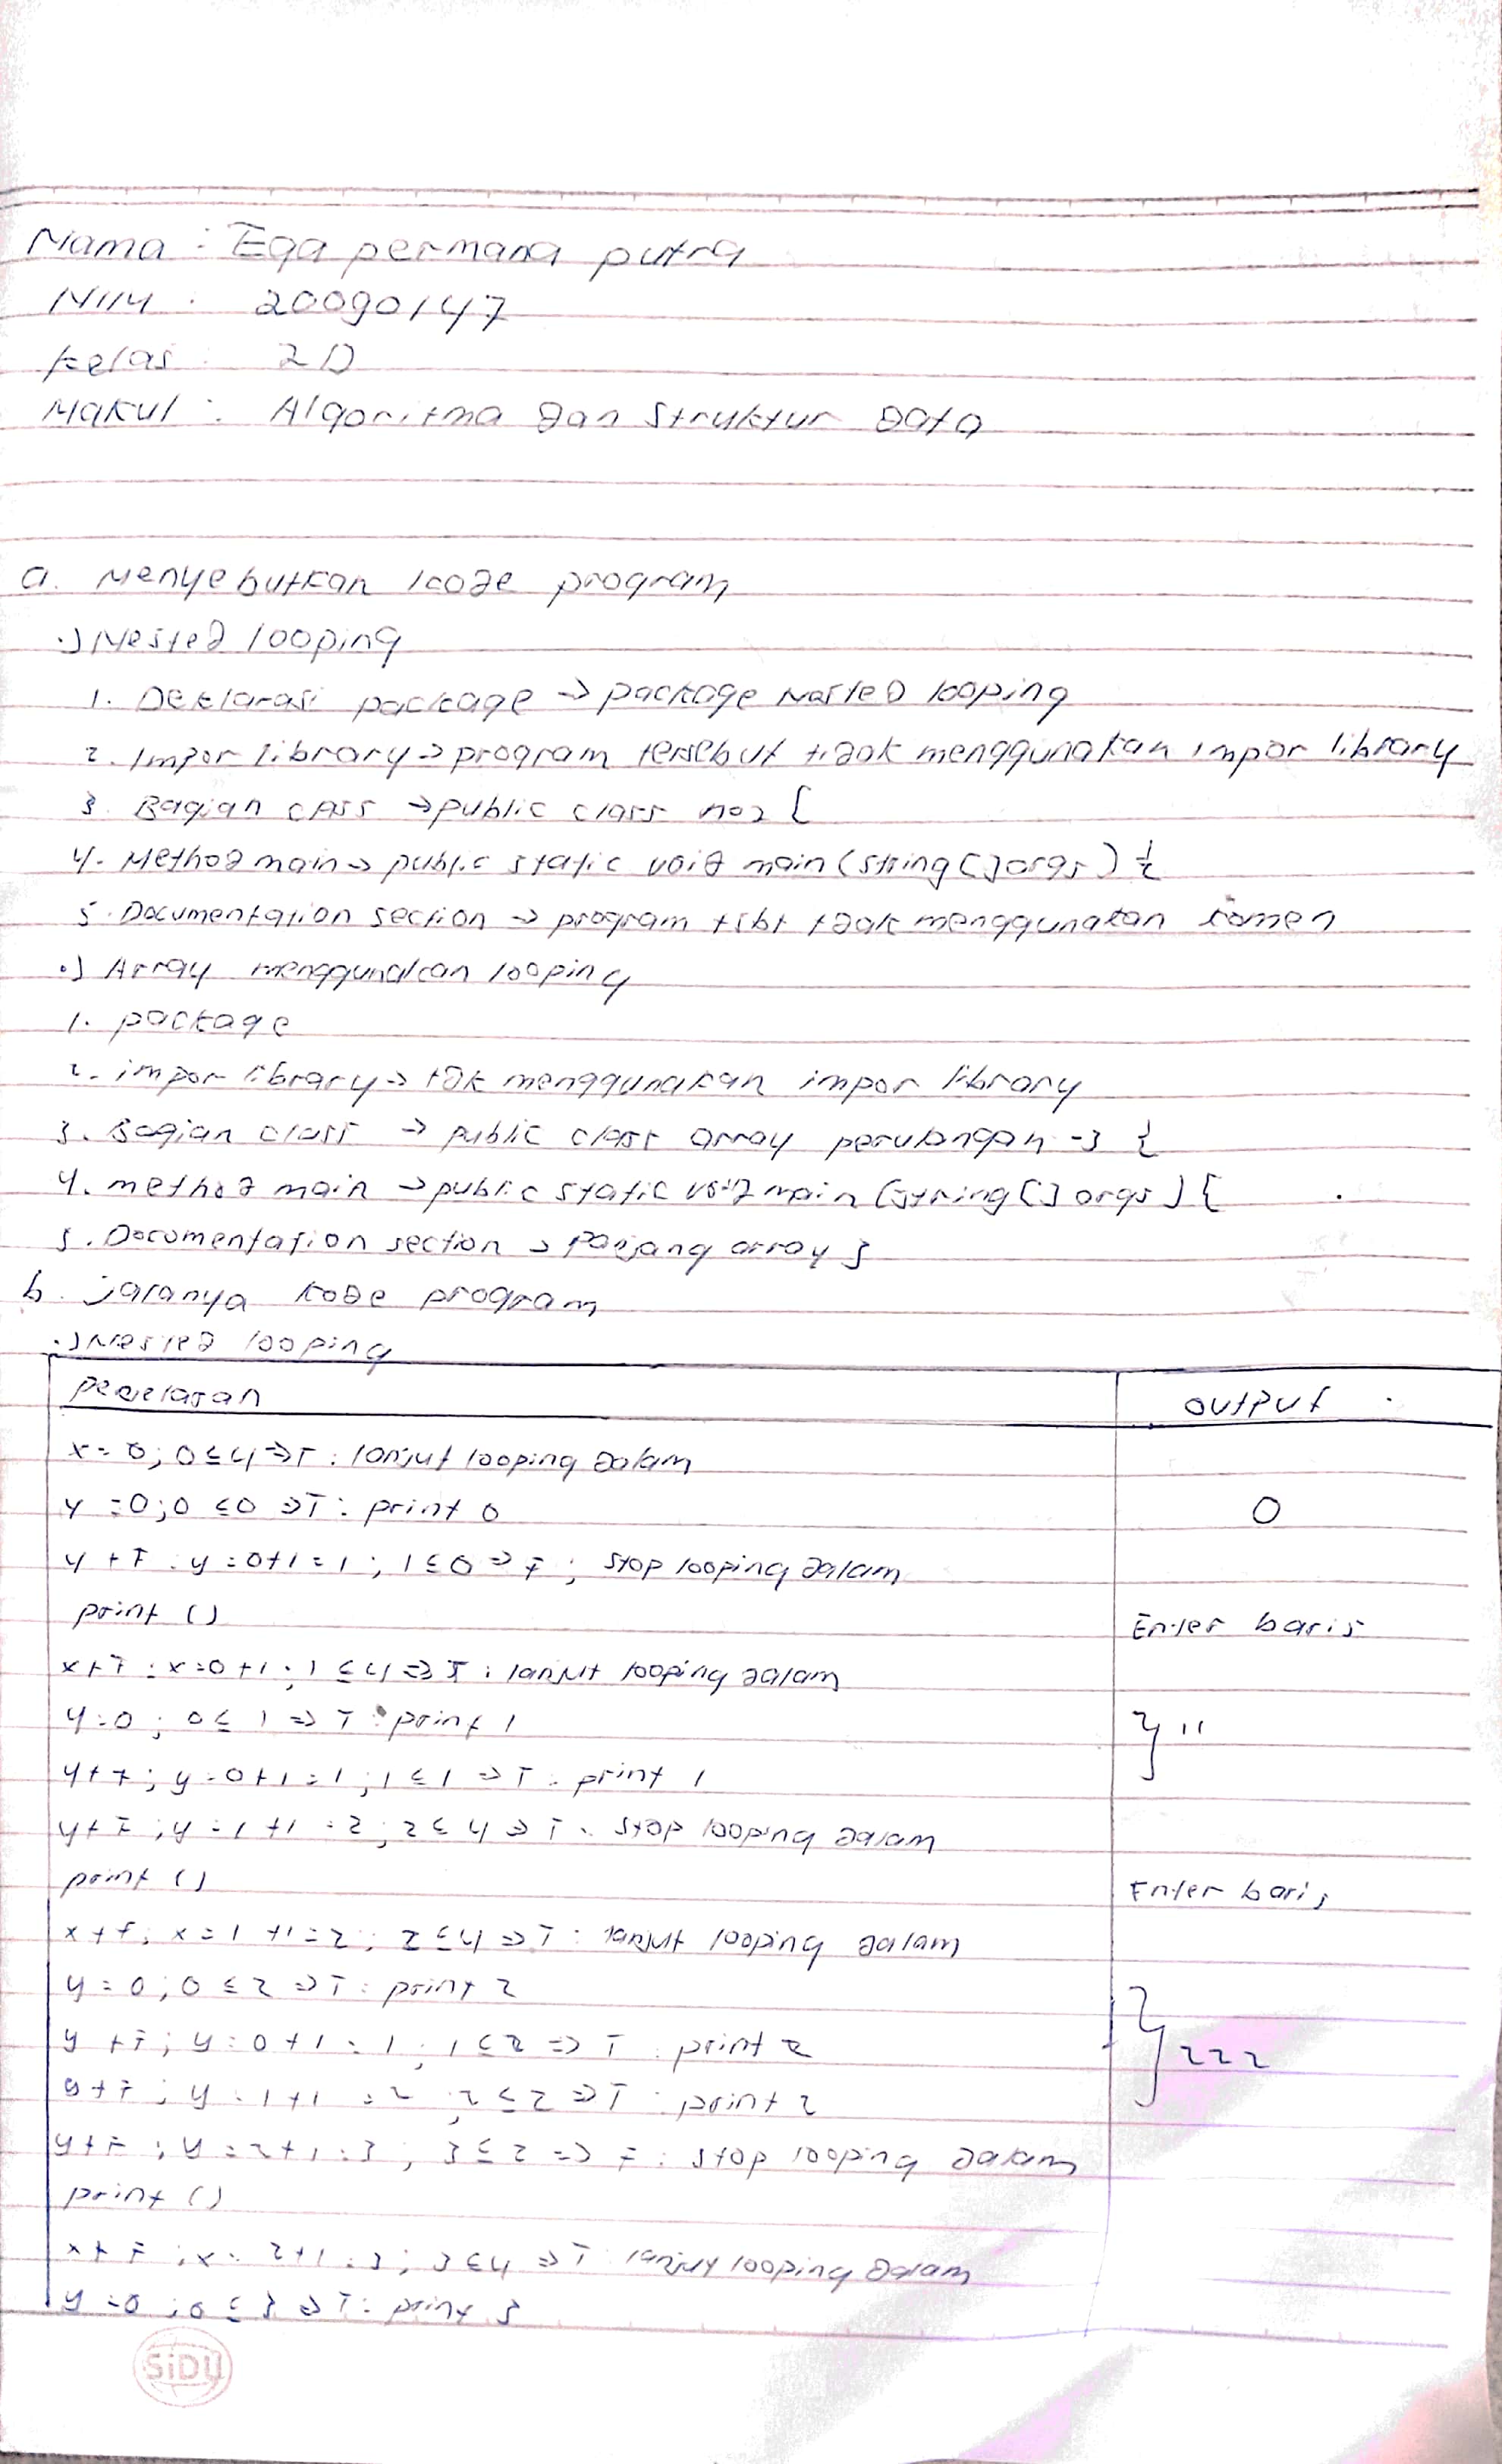 Nama : Ega permana putra
NIM : 20090147
Kelas : 2D
Makul : Algoritma dan Struktur Data
a. Menyebutkan kode program
.) Nested looping
1. Deklarasi package → package Nested looping
2. Impor library → program tersebut tidak menggunakan impor library
3. Bagian class → public class no2 {
4. Method main → public static void main (string [] args) {
5. Documentation section → program tsbt tdak menggunakan komen
.) Array menggunakan looping
1. package
2. impor library → tdk menggunakan impor library
3. Bagian class → public class array perulangan -3 {
4. method main → public static void main (string [] args) {
5. Documentation section → panjang array 3
b. jalannya kode program
.) Nested looping
penjelasan output
x = 0; 0 ≤ 4 ⇒ T : lanjut looping dalam
y = 0; 0 ≤ 0 ⇒ T : print 0 0
y++ : y = 0+1 = 1 ; 1 ≤ 0 ⇒ F ; stop looping dalam
print () Enter baris
x++ : x = 0+1 ; 1 ≤ 4 ⇒ T : lanjut looping dalam
y = 0 ; 0 ≤ 1 ⇒ T : print 1 } 11
y++ ; y = 0+1 = 1 ; 1 ≤ 1 ⇒ T : print 1
y++ ; y = 1+1 = 2 ; 2 ≤ 4 ⇒ T : stop looping dalam
print () Enter baris
x++ ; x = 1+1 = 2 ; 2 ≤ 4 ⇒ T : lanjut looping dalam
y = 0 ; 0 ≤ 2 ⇒ T : print 2
y++ ; y = 0+1 = 1 ; 1 ≤ 2 ⇒ T : print 2 } 222
y++ ; y = 1+1 = 2 ; 2 ≤ 2 ⇒ T : print 2
y++ ; y = 2+1 = 3 ; 3 ≤ 2 ⇒ F : stop looping dalam
print ()
x++ ; x = 2+1 = 3 ; 3 ≤ 4 ⇒ T lanjut looping dalam
y = 0 ; 0 ≤ 3 ⇒ T : print 3
SiDU